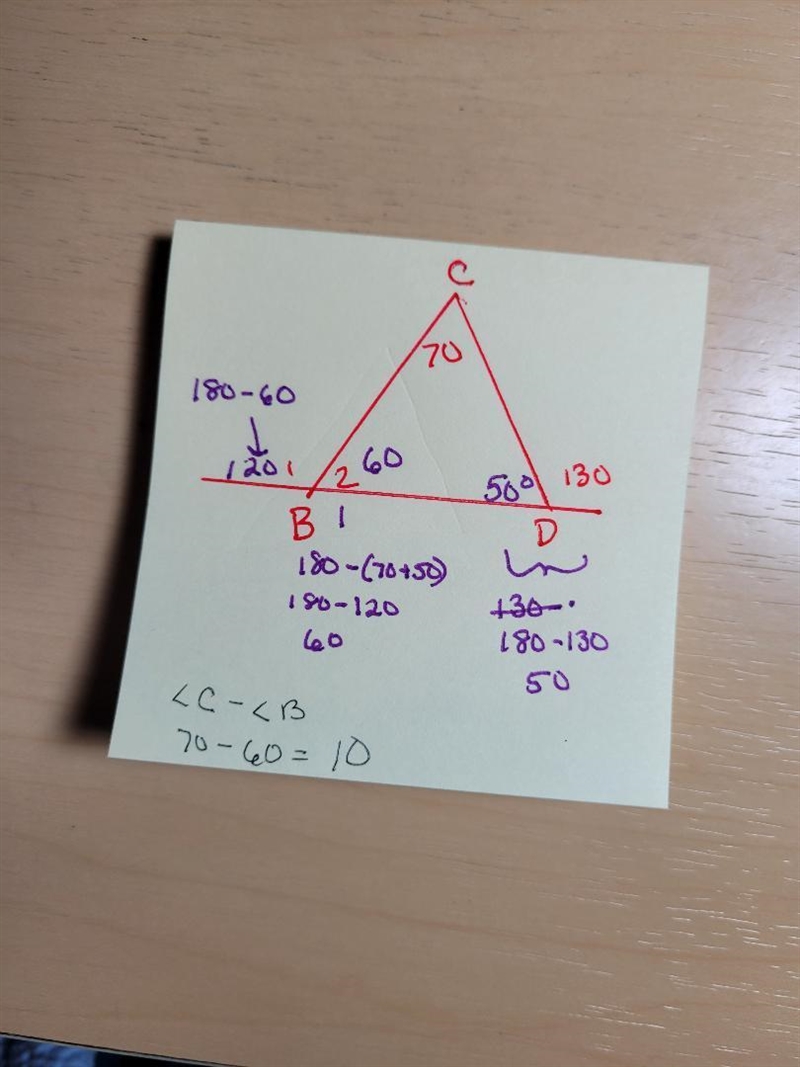 C
70
180-60
120 1
2 60
50° 130
B 1
D
180-(70+50)
180-120
60
130
180-130
50
<C-<B
70-60= 10